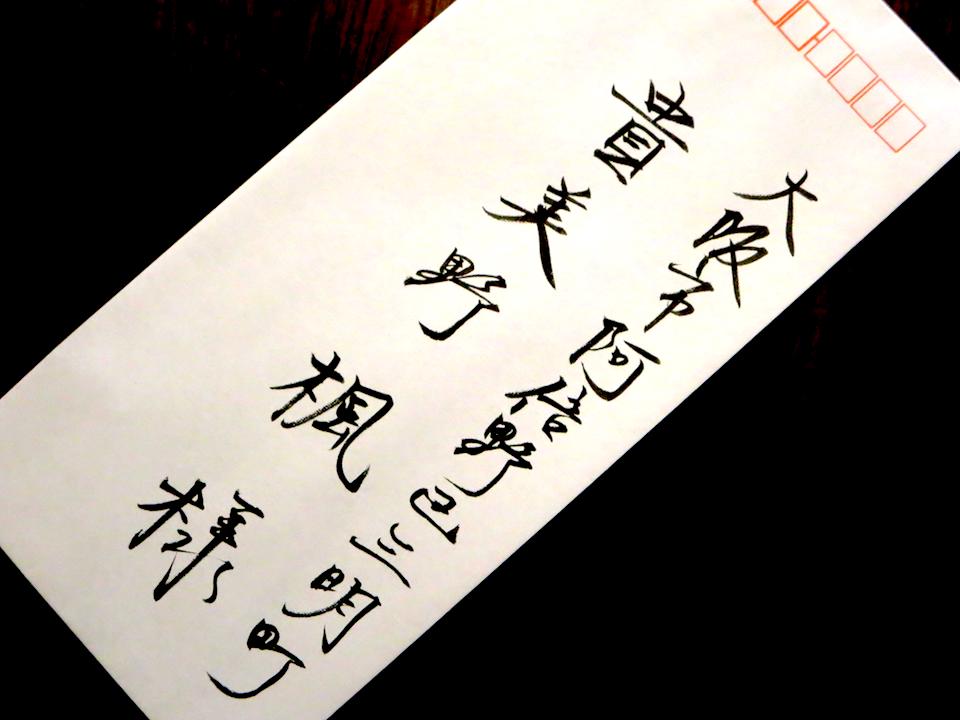 大阪市阿倍野区三明町
貴美野楓様